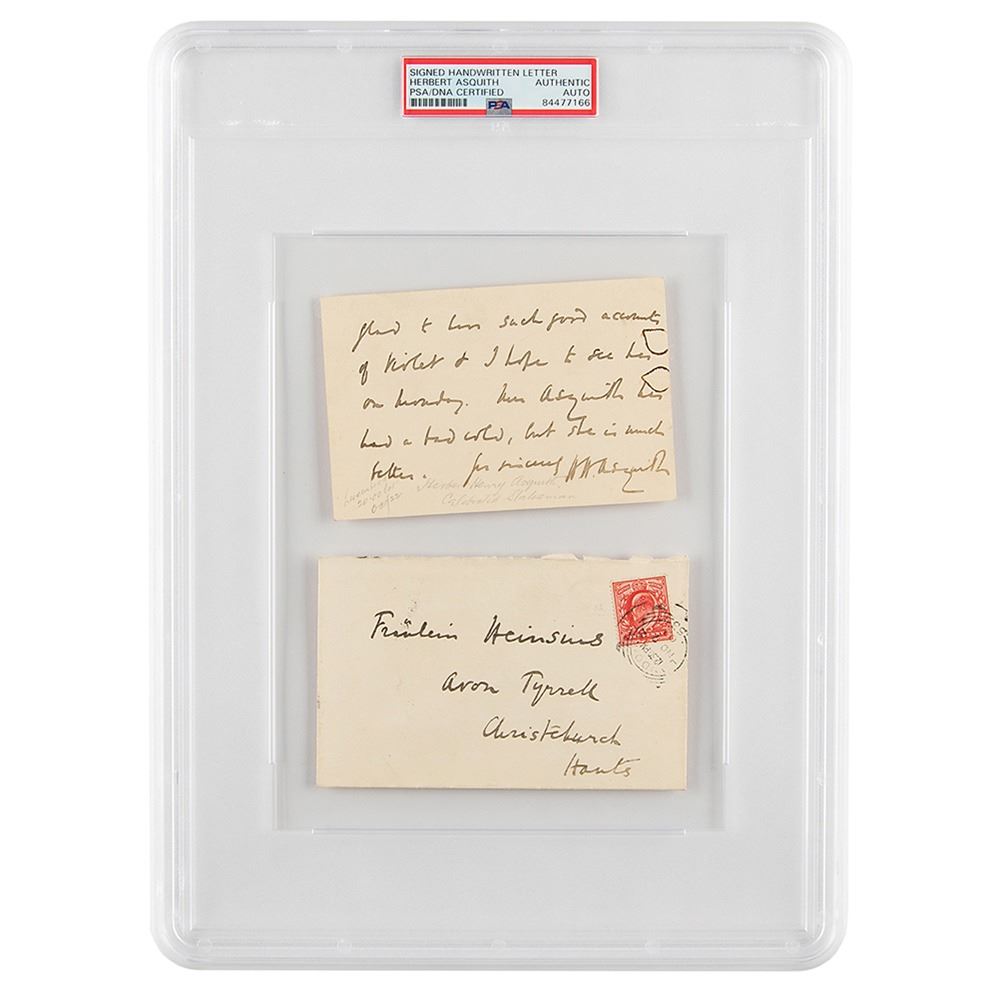 SIGNED HANDWRITTEN LETTER
HERBERT ASQUITH AUTHENTIC
PSA/DNA CERTIFIED AUTO
PSA 84477166
glad to have such good accounts
of Violet & I hope to see her
on Monday. Mrs Asquith has
had a bad cold, but she is much
better. Yrs sincerely HHAsquith
Herbert Henry Asquith
Celebrated Statesman
Fräulein Heinsius
Avon Tyrrell
Christchurch
Hants